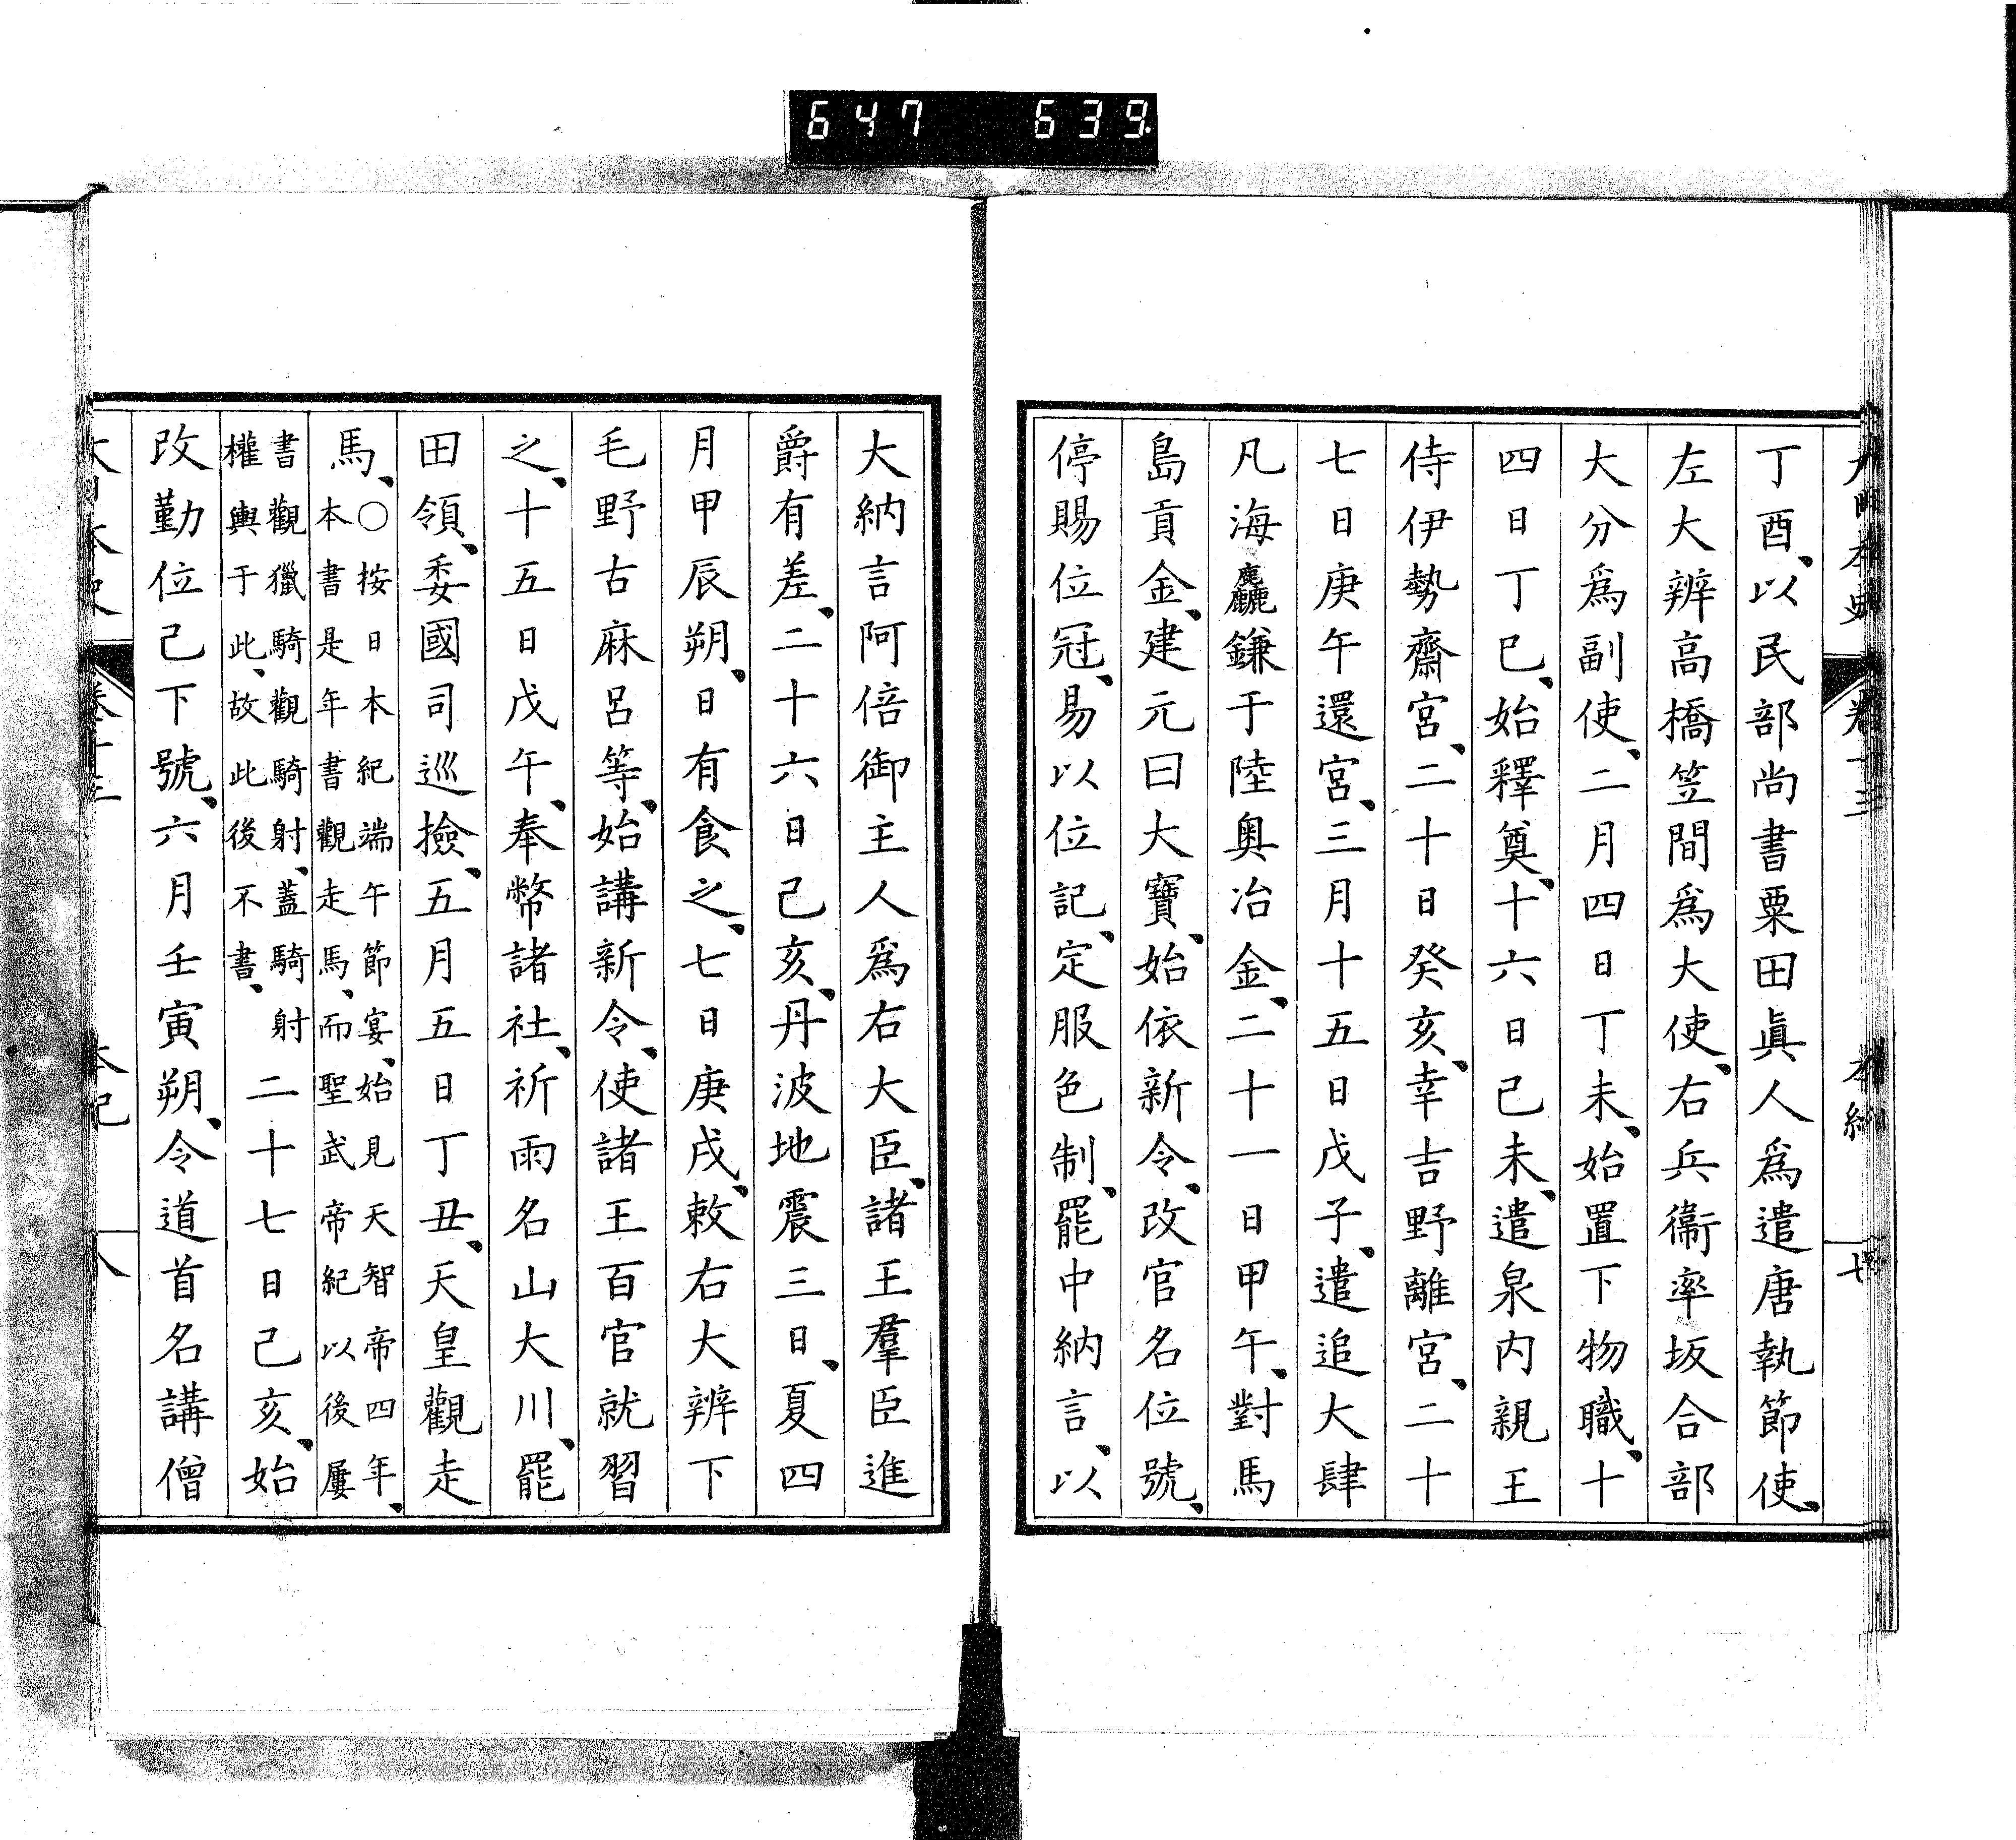 647 639
大日本史 卷十三 本紀 七
丁酉、以民部尚書粟田眞人爲遣唐執節使、
左大辨高橋笠間爲大使、右兵衞率坂合部
大分爲副使、二月四日丁未、始置下物職、十
四日丁巳、始釋奠、十六日己未、遣泉内親王
侍伊勢齋宮、二十日癸亥、幸吉野離宮、二十
七日庚午還宮、三月十五日戊子、遣追大肆
凡海麤鎌于陸奥冶金、二十一日甲午、對馬
島貢金、建元曰大寶、始依新令、改官名位號、
停賜位冠、易以位記、定服色制、罷中納言、以
大納言阿倍御主人爲右大臣、諸王羣臣進
爵有差、二十六日己亥、丹波地震三日、夏四
月甲辰朔、日有食之、七日庚戌、敕右大辨下
毛野古麻呂等、始講新令、使諸王百官就習
之、十五日戊午、奉幣諸社、祈雨名山大川、罷
田領、委國司巡撿、五月五日丁丑、天皇觀走
馬、〇按日本紀端午節宴、始見天智帝四年、
本書是年書觀走馬、而聖武帝紀以後屢
書觀獵騎觀騎射、蓋騎射
權輿于此、故此後不書、
二十七日己亥、始
改勤位己下號、六月壬寅朔、令道首名講僧
大日本史 卷十三 本紀 八